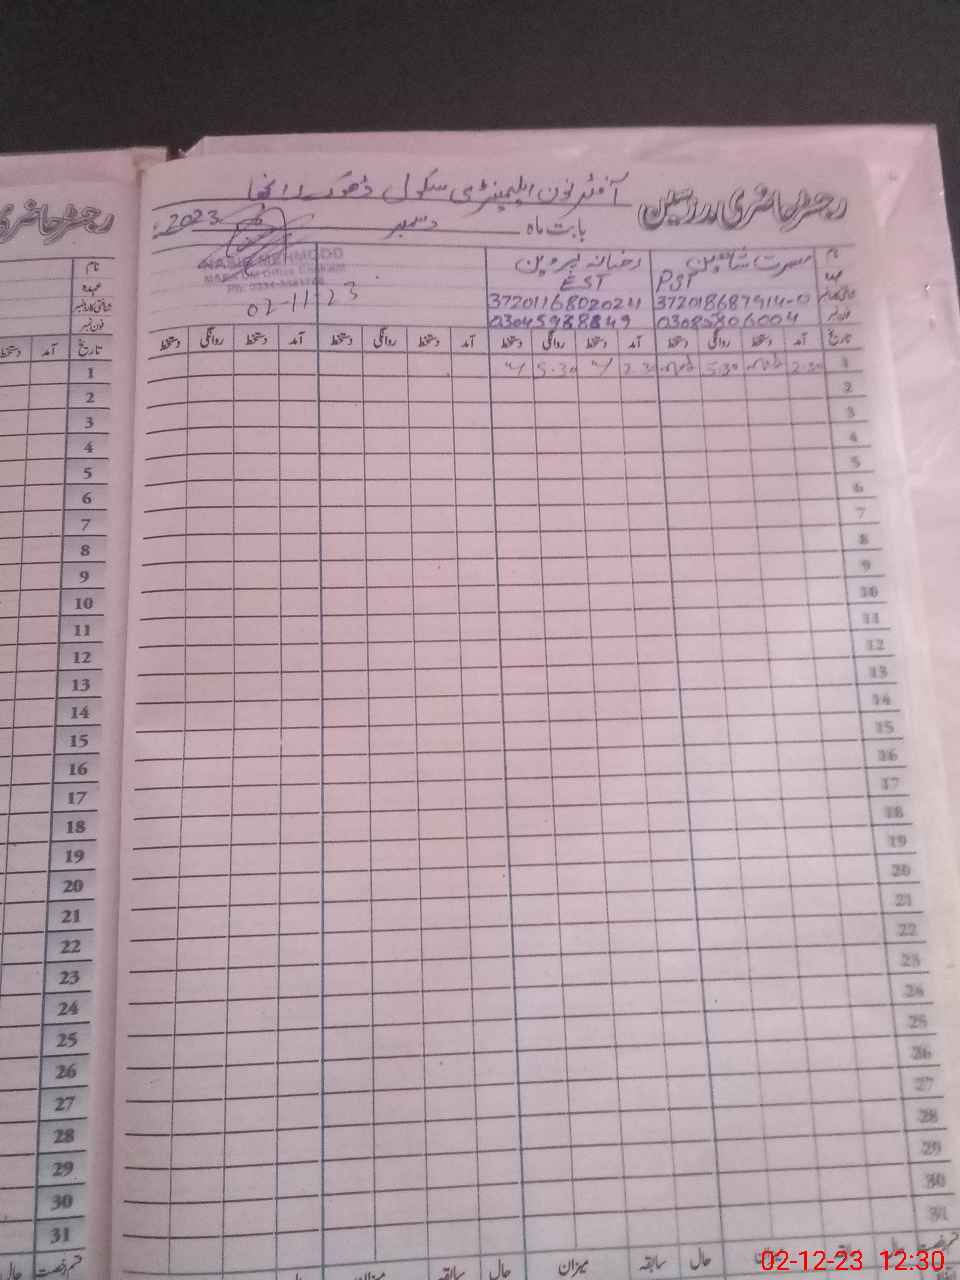 رجسٹر حاضری مدرسین
آفٹر نون ایلیمنٹری سکول ڈھوک
بابت ماہ دسمبر 2023
نام مسرت شاہین رخسانہ پروین
عہدہ PST EST
37201168020241
03045988849 03085806004
NASIR MEHMOOD
02-11-23
تاریخ آمد دستخط روانگی دستخط آمد دستخط روانگی دستخط آمد دستخط روانگی دستخط آمد دستخط روانگی دستخط
1 2:30 5:30 2:30 5:30
2
3
4
5
6
7
8
9
10
11
12
13
14
15
16
17
18
19
20
21
22
23
24
25
26
27
28
29
30
31
حال سابقہ میزان حال سابقہ میزان
رجسٹر حاضری
نام
عہدہ
فون نمبر
تاریخ آمد دستخط
1
2
3
4
5
6
7
8
9
10
11
12
13
14
15
16
17
18
19
20
21
22
23
24
25
26
27
28
29
30
31
قسم رخصت حال
02-12-23 12:30